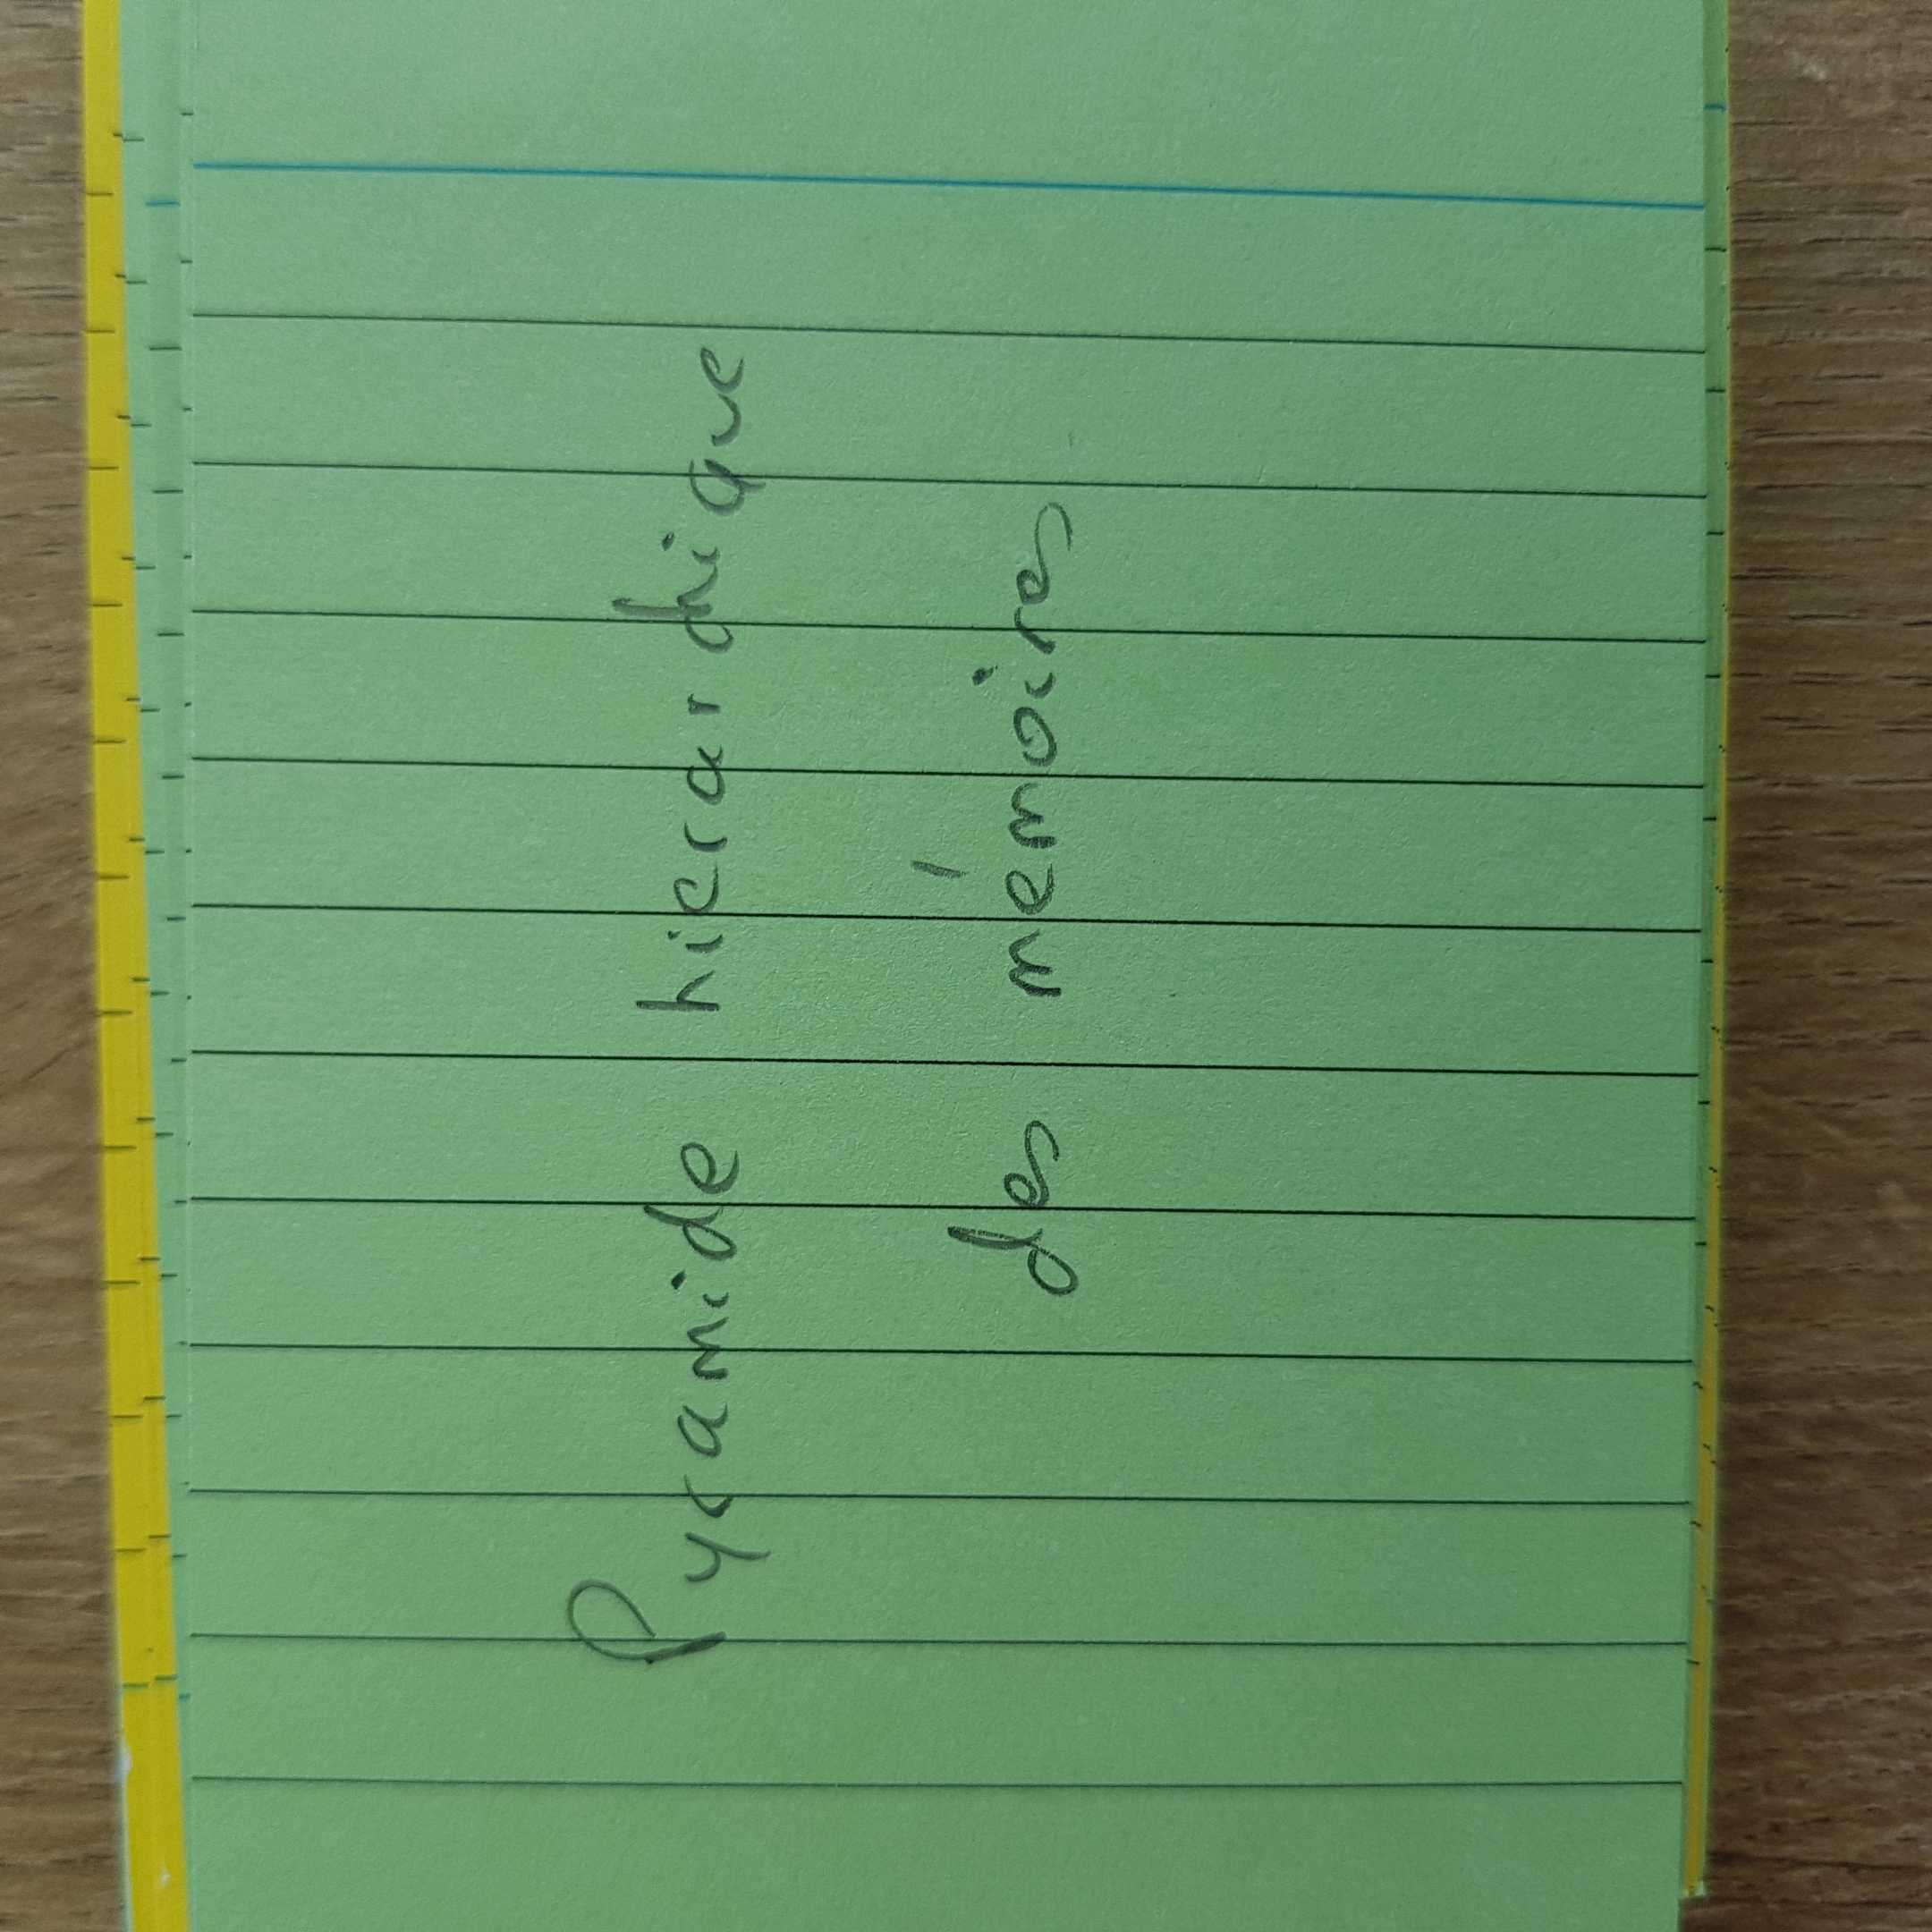 Pyramide hierarchique
des mémoires